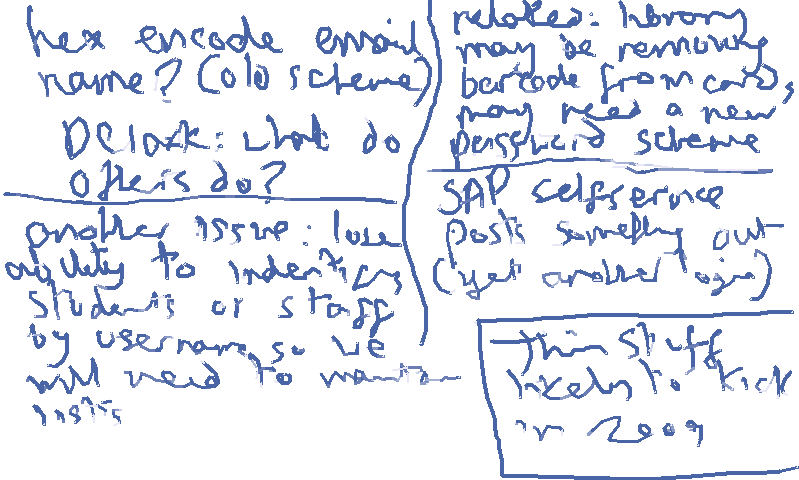 hex encode email
name? (old scheme)
DClark: what do
others do?
another issue: lose
ability to indentify
students or staff
by username, so we
will need to maintain
lists
related: library
may be removing
barcode from cards,
may need a new
password scheme
SAP selfservice
posts something out
(yet another login)
This stuff
likely to kick
in 2009